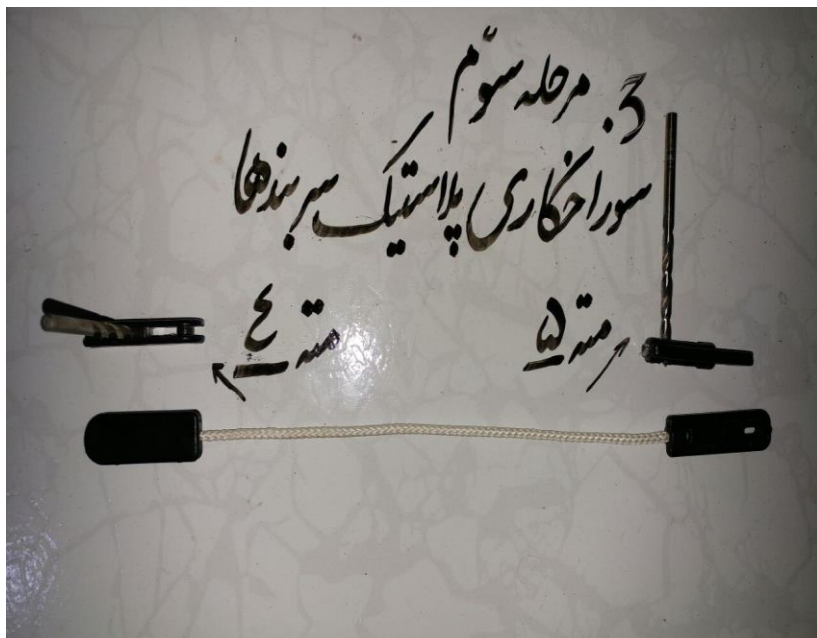 3. مرحله سوّم
سوراخکاری پلاستیک سربندها
مته ۵
مته ٤